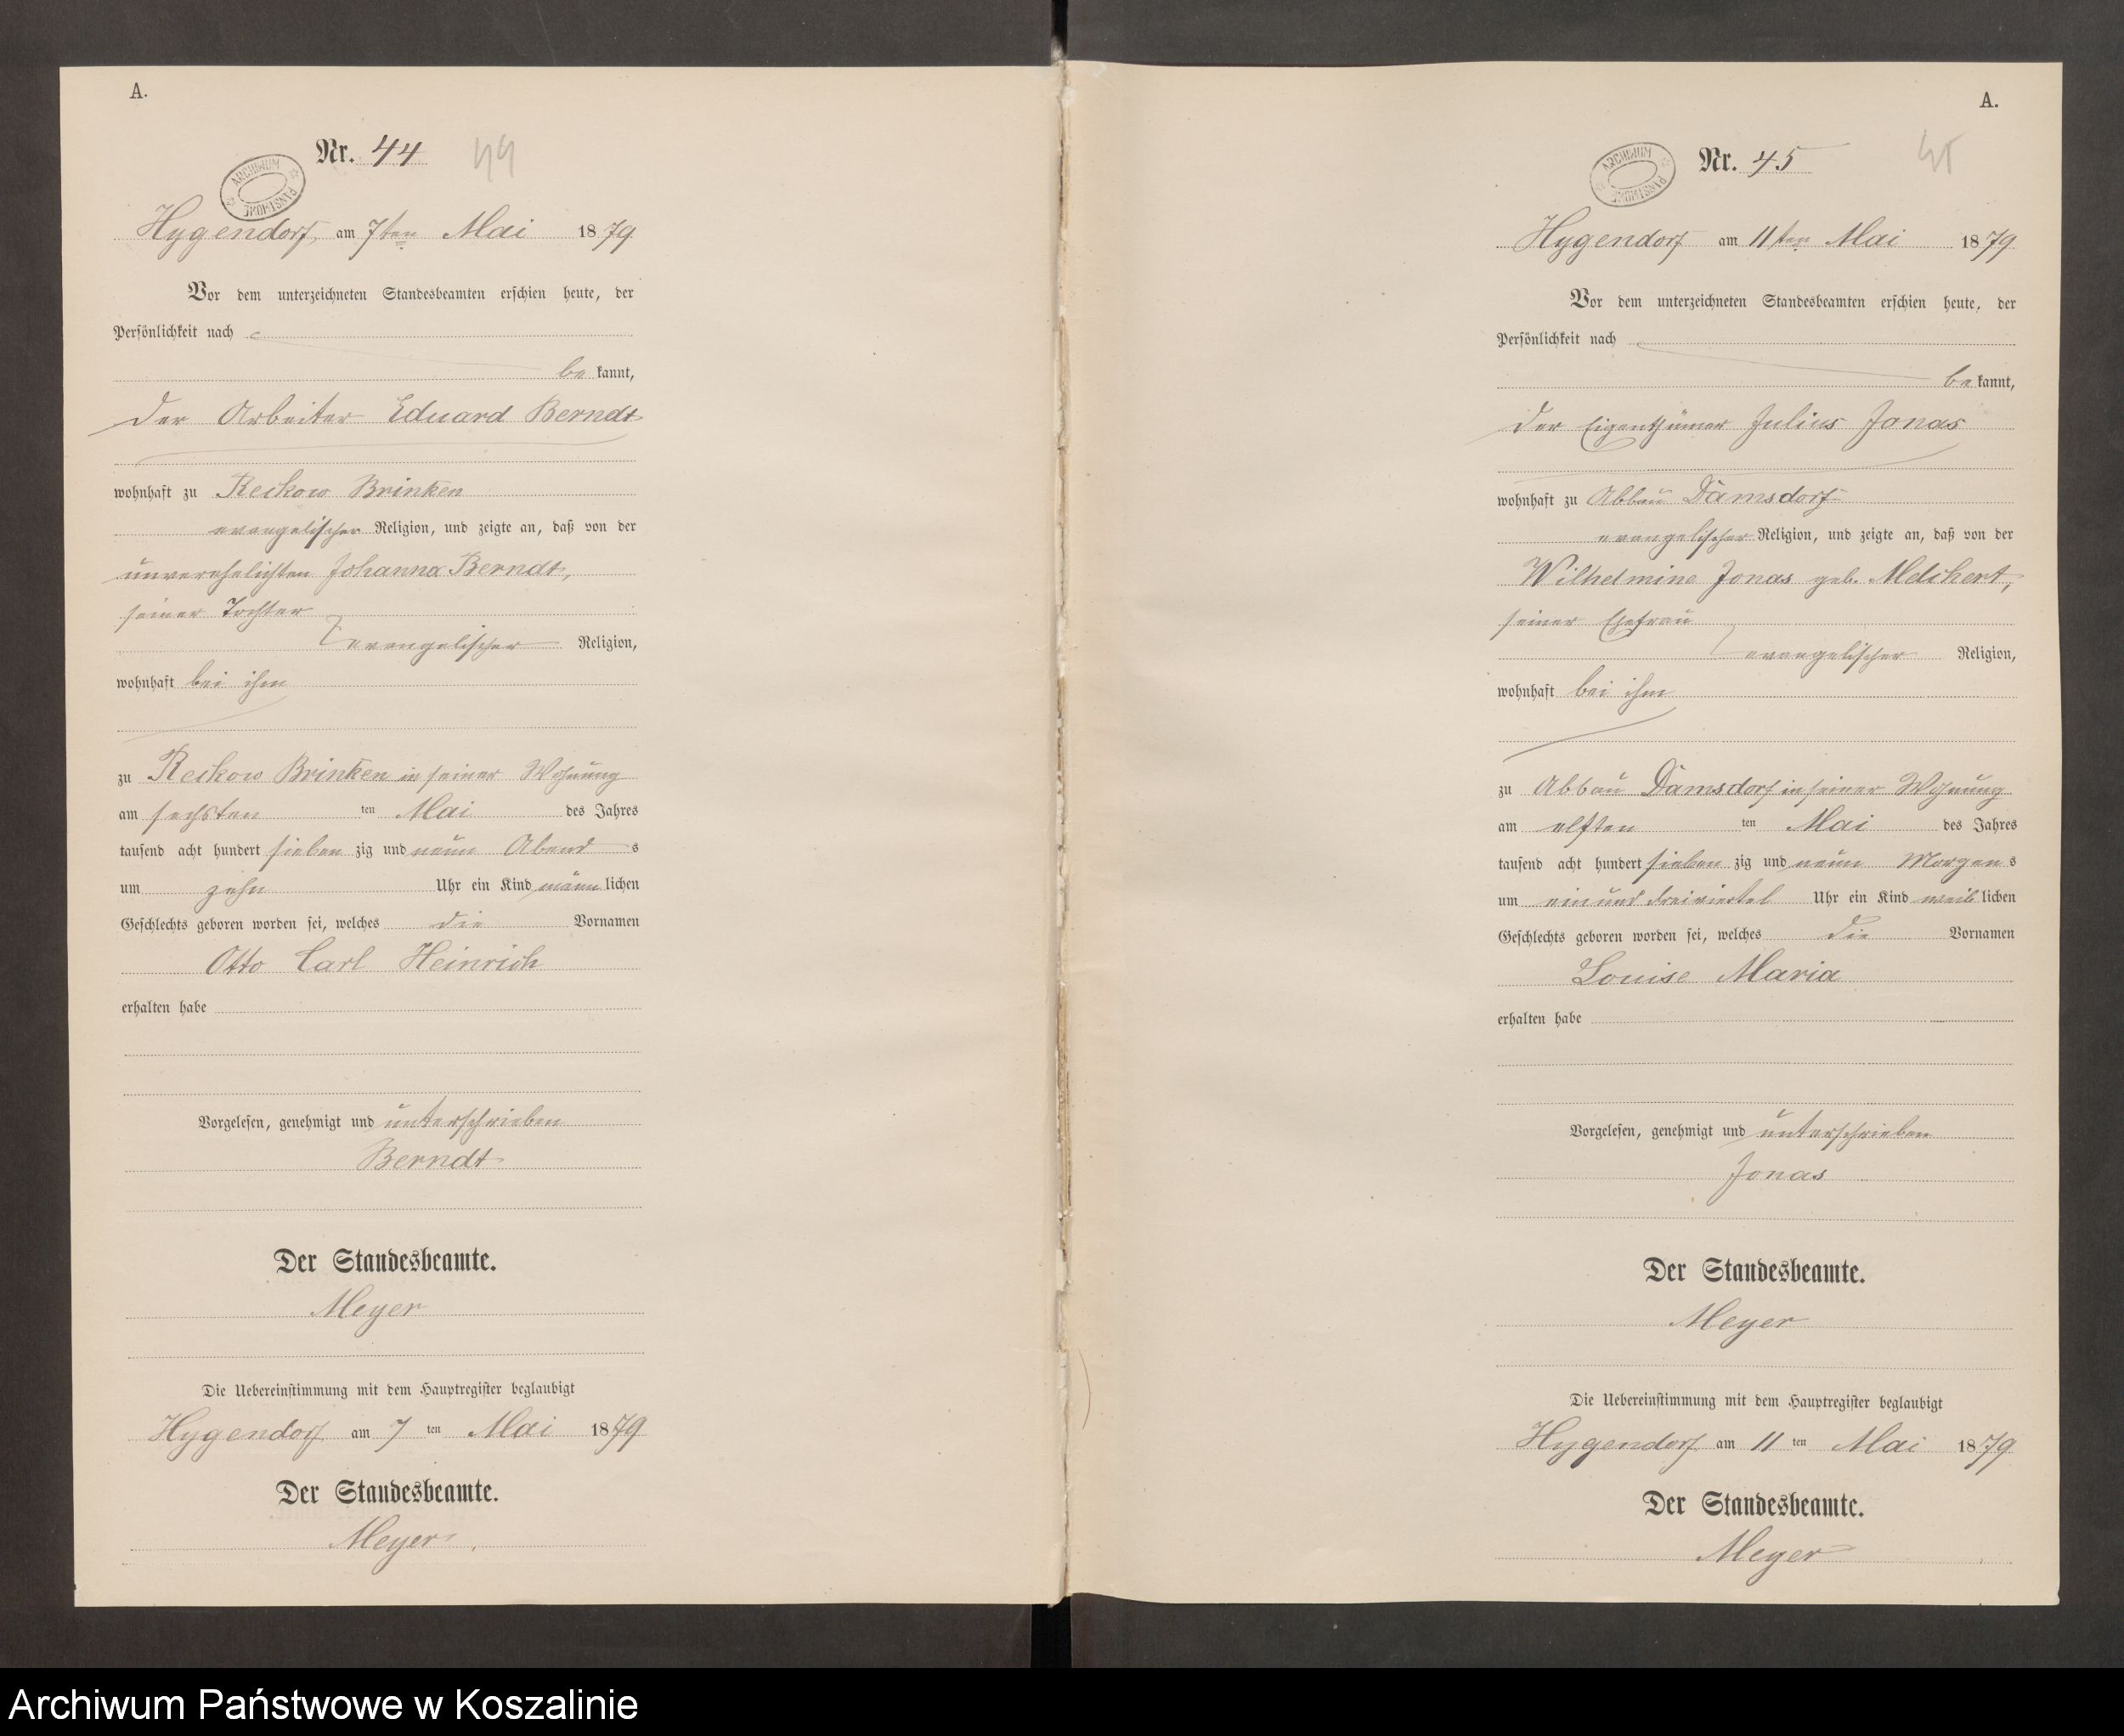 A.
Nr. 44 44
ARCHIWUM PAŃSTWOWE
Hygendorf, am 7ten Mai 1879
Vor dem unterzeichneten Standesbeamten erschien heute, der
Persönlichkeit nach
be kannt,
der Arbeiter Eduard Berndt
wohnhaft zu Reckow Brinken
evangelischer Religion, und zeigte an, daß von der
unverehelichten Johanna Berndt,
seiner Tochter
evangelischer Religion,
wohnhaft bei ihm
zu Reckow Brinken in seiner Wohnung
am sechsten ten Mai des Jahres
tausend acht hundert sieben zig und neun Abend s
um zehn Uhr ein Kind männ lichen
Geschlechts geboren worden sei, welches die Vornamen
Otto Carl Heinrich
erhalten habe
Vorgelesen, genehmigt und unterschrieben
Berndt
Der Standesbeamte.
Meyer
Die Uebereinstimmung mit dem Hauptregister beglaubigt
Hygendorf am 7 ten Mai 1879
Der Standesbeamte.
Meyer.
A.
Nr. 45 45
ARCHIWUM PAŃSTWOWE
Hygendorf am 11ten Mai 1879
Vor dem unterzeichneten Standesbeamten erschien heute, der
Persönlichkeit nach
be kannt,
der Eigenthümer Julius Jonas
wohnhaft zu Abbau Damsdorf
evangelischer Religion, und zeigte an, daß von der
Wilhelmine Jonas geb. Melchert,
seiner Ehefrau
evangelischer Religion,
wohnhaft bei ihm
zu Abbau Damsdorf in seiner Wohnung
am elften ten Mai des Jahres
tausend acht hundert sieben zig und neun Morgen s
um ein und dreiviertel Uhr ein Kind weib lichen
Geschlechts geboren worden sei, welches die Vornamen
Louise Maria
erhalten habe
Vorgelesen, genehmigt und unterschrieben
Jonas
Der Standesbeamte.
Meyer
Die Uebereinstimmung mit dem Hauptregister beglaubigt
Hygendorf am 11 ten Mai 1879
Der Standesbeamte.
Meyer
Archiwum Państwowe w Koszalinie